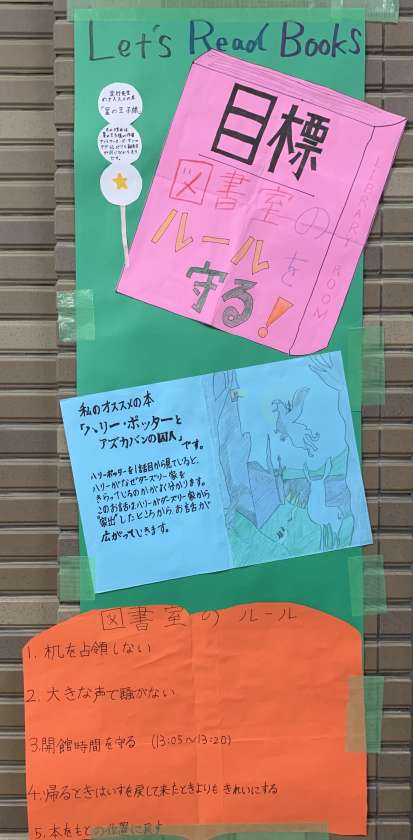 Let's Read Books
目標
図書室の
ルールを
守る!
LIBRARY ROOM
「星の王子様
私のオススメの本
「ハリー・ポッターと
アズカバンの囚人」
です。
ハリーポッターを1話目から見ていると、
ハリーがなぜダーズリー家を
きらっているのかがよく分かります。
このお話はハリーがダーズリー家から
"家出"したところから、お話が
広がっていきます。
図書室のルール
1. 机を占領しない
2. 大きな声で騒がない
3. 開館時間を守る (13:05~13:20)
4. 帰るときはいすを戻して来たときよりもきれいにする
5. 本をもとの位置に戻す